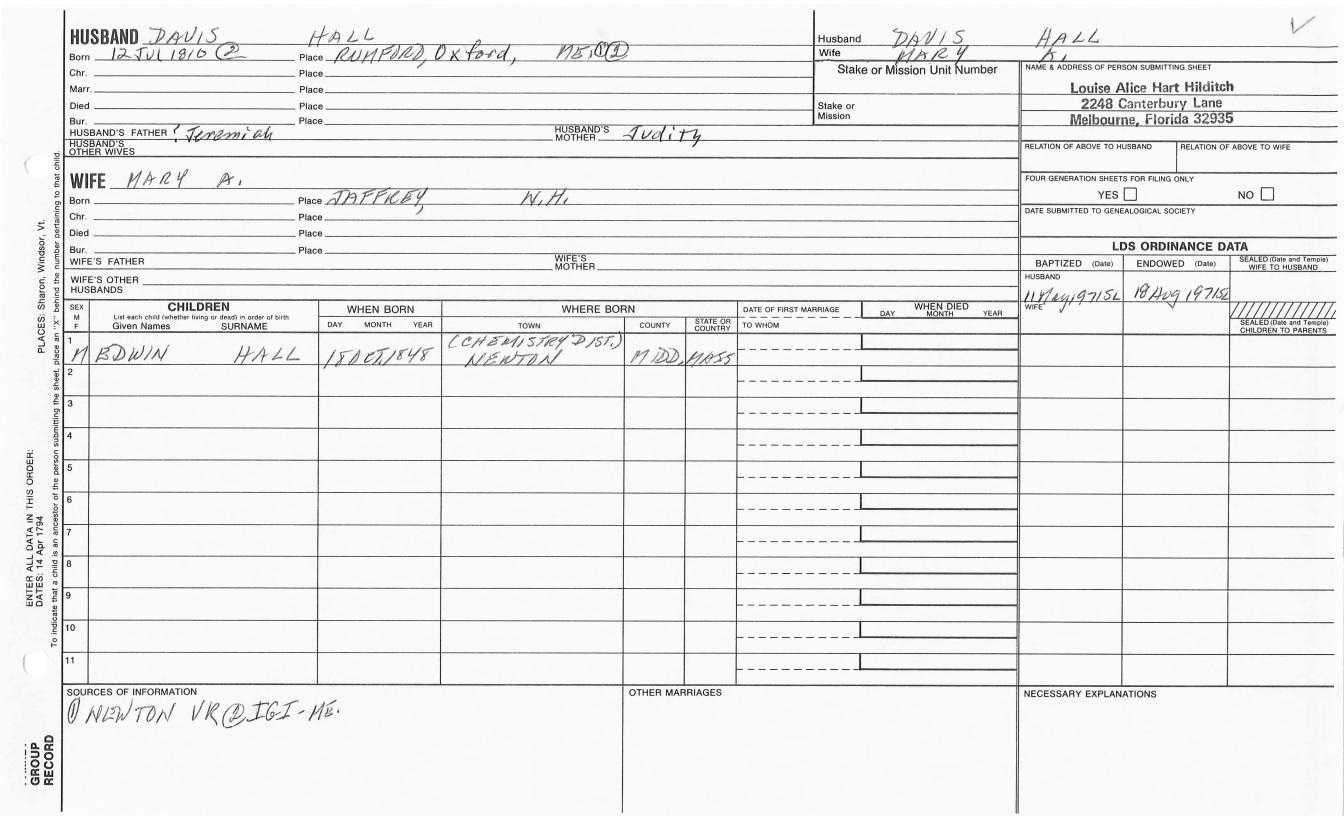 HUSBAND DAVIS HALL
Born 12 JUL 1810 ② Place RUMFORD, Oxford, ME. ①②
Chr. Place
Marr. Place
Died Place
Bur. Place
HUSBAND'S FATHER ? Jeremiah HUSBAND'S MOTHER Judity
HUSBAND'S OTHER WIVES
Husband DAVIS HALL
Wife MARY A.
Stake or Mission Unit Number
Stake or Mission
NAME & ADDRESS OF PERSON SUBMITTING SHEET
Louise Alice Hart Hilditch
2248 Canterbury Lane
Melbourne, Florida 32935
RELATION OF ABOVE TO HUSBAND RELATION OF ABOVE TO WIFE
FOUR GENERATION SHEETS FOR FILING ONLY
YES NO
DATE SUBMITTED TO GENEALOGICAL SOCIETY
WIFE MARY A.
Born Place JAFFREY, N.H.
Chr. Place
Died Place
Bur. Place
WIFE'S FATHER WIFE'S MOTHER
WIFE'S OTHER HUSBANDS
LDS ORDINANCE DATA
BAPTIZED (Date) ENDOWED (Date) SEALED (Date and Temple) WIFE TO HUSBAND
HUSBAND
11 May 1971 SL 18 Aug 1971 SL
WIFE
SEALED (Date and Temple) CHILDREN TO PARENTS
SEX M F
CHILDREN
List each child (whether living or dead) in order of birth
Given Names SURNAME
WHEN BORN
DAY MONTH YEAR
WHERE BORN
TOWN COUNTY STATE OR COUNTRY
DATE OF FIRST MARRIAGE
TO WHOM
WHEN DIED
DAY MONTH YEAR
1 (CHEMISTRY DIST.)
M EDWIN HALL 18 OCT. 1848 NEWTON MIDD. MASS
2
3
4
5
6
7
8
9
10
11
SOURCES OF INFORMATION
① NEWTON VR ② IGI-ME.
OTHER MARRIAGES
NECESSARY EXPLANATIONS
PLACES: Sharon, Windsor, Vt.
ENTER ALL DATA IN THIS ORDER:
DATES: 14 Apr 1794
To indicate that a child is an ancestor of the person submitting the sheet, place an "X" behind the number pertaining to that child.
GROUP
RECORD